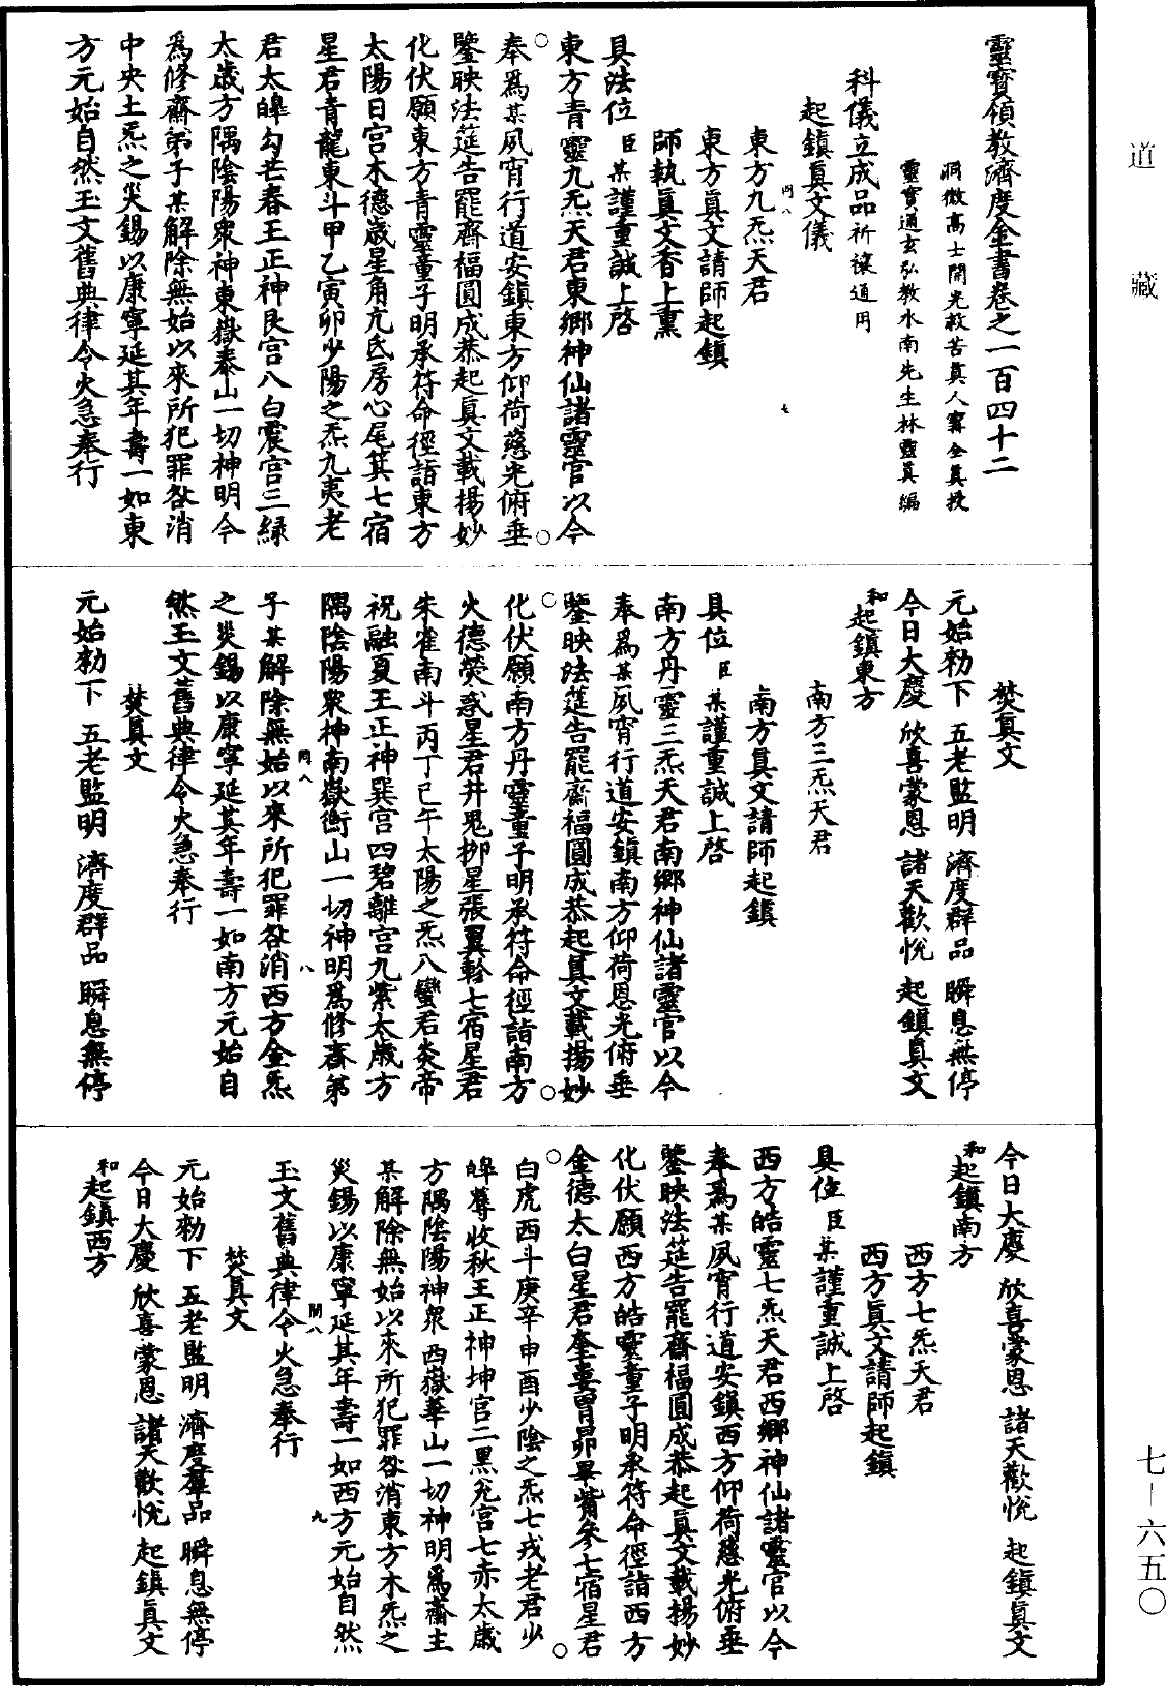 道藏
靈寶領教濟度金書卷之一百四十二
洞微高士開光救苦真人寧全真授
靈寶通玄弘教水南先生林靈真編
科儀立成品祈禳通用
起鎮真文儀
東方九炁天君
東方真文請師起鎮
師執真文香上熏
具法位臣某謹重誠上啓
東方青靈九炁天君東鄉神仙諸靈官以今
奉為某夙宵行道安鎮東方仰荷慈光俯垂
鑒映法筵告罷齋福圓成恭起真文載揚妙
化伏願東方青靈童子明承符命徑詣東方
太陽日宮木德歲星角亢氐房心尾箕七宿
星君青龍東斗甲乙寅卯少陽之炁九夷老
君太皞勾芒春王正神艮宮八白震宮三綠
太歲方隅陰陽衆神東嶽泰山一切神明今
為修齋弟子某解除無始以來所犯罪咎消
中央土炁之災錫以康寧延其年壽一如東
方元始自然玉文舊典律令火急奉行
焚真文
元始勑下 五老監明 濟度群品 瞬息無停
今日大慶 欣喜蒙恩 諸天歡悅 起鎮真文
和起鎮東方
南方三炁天君
南方真文請師起鎮
具位臣某謹重誠上啓
南方丹靈三炁天君南鄉神仙諸靈官以今
奉為某夙宵行道安鎮南方仰荷恩光俯垂
鑒映法筵告罷齋福圓成恭起真文載揚妙
化伏願南方丹靈童子明承符命徑詣南方
火德熒惑星君井鬼柳星張翼軫七宿星君
朱雀南斗丙丁巳午太陽之炁八蠻君炎帝
祝融夏王正神巽宮四碧離宮九紫太歲方
隅陰陽衆神南嶽衡山一切神明為修齋弟
子某解除無始以來所犯罪咎消西方金炁
之災錫以康寧延其年壽一如南方元始自
然玉文舊典律令火急奉行
焚真文
元始勑下 五老監明 濟度群品 瞬息無停
今日大慶 欣喜蒙恩 諸天歡悅 起鎮真文
和起鎮南方
西方七炁天君
西方真文請師起鎮
具位臣某謹重誠上啓
西方皓靈七炁天君西鄉神仙諸靈官以今
奉為某夙宵行道安鎮西方仰荷慈光俯垂
鑒映法筵告罷齋福圓成恭起真文載揚妙
化伏願西方皓靈童子明承符命徑詣西方
金德太白星君奎婁胃昴畢觜參七宿星君
白虎西斗庚辛申酉少陰之炁七戎老君少
皞蓐收秋王正神坤宮二黑兌宮七赤太歲
方隅陰陽神衆西嶽華山一切神明為齋主
某解除無始以來所犯罪咎消東方木炁之
災錫以康寧延其年壽一如西方元始自然
玉文舊典律令火急奉行
焚真文
元始勑下 五老監明 濟度羣品 瞬息無停
今日大慶 欣喜蒙恩 諸天歡悅 起鎮真文
和起鎮西方
七－六五〇